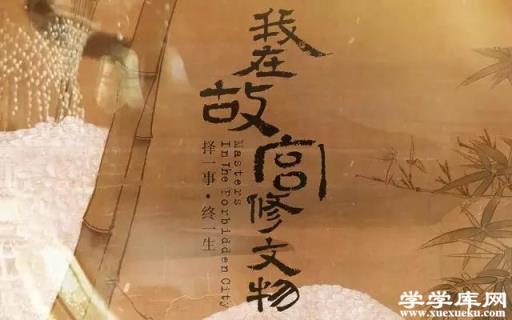 我在故宫修文物
Masters
In The Forbidden City
择一事·终一生
学学库网
www.xuexueku.com